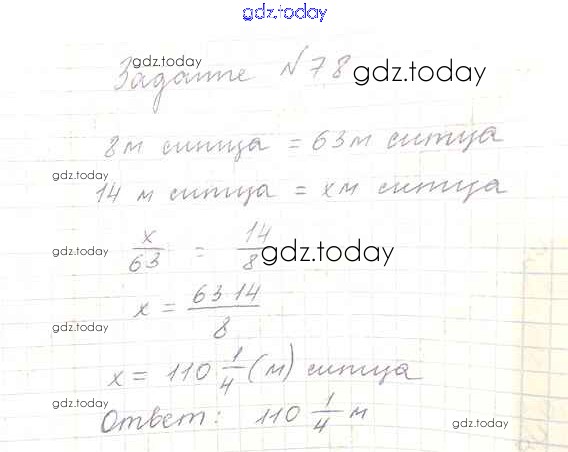 gdz.today
gdz.today
Задание №78 gdz.today
8м ситца = 63м ситца
gdz.today
14 м ситца = xм ситца
gdz.today x/63 = 14/8 gdz.today gdz.today
x = 63·14/8
gdz.today
x = 110 1/4 (м) ситца
gdz.today
Ответ: 110 1/4 м gdz.today